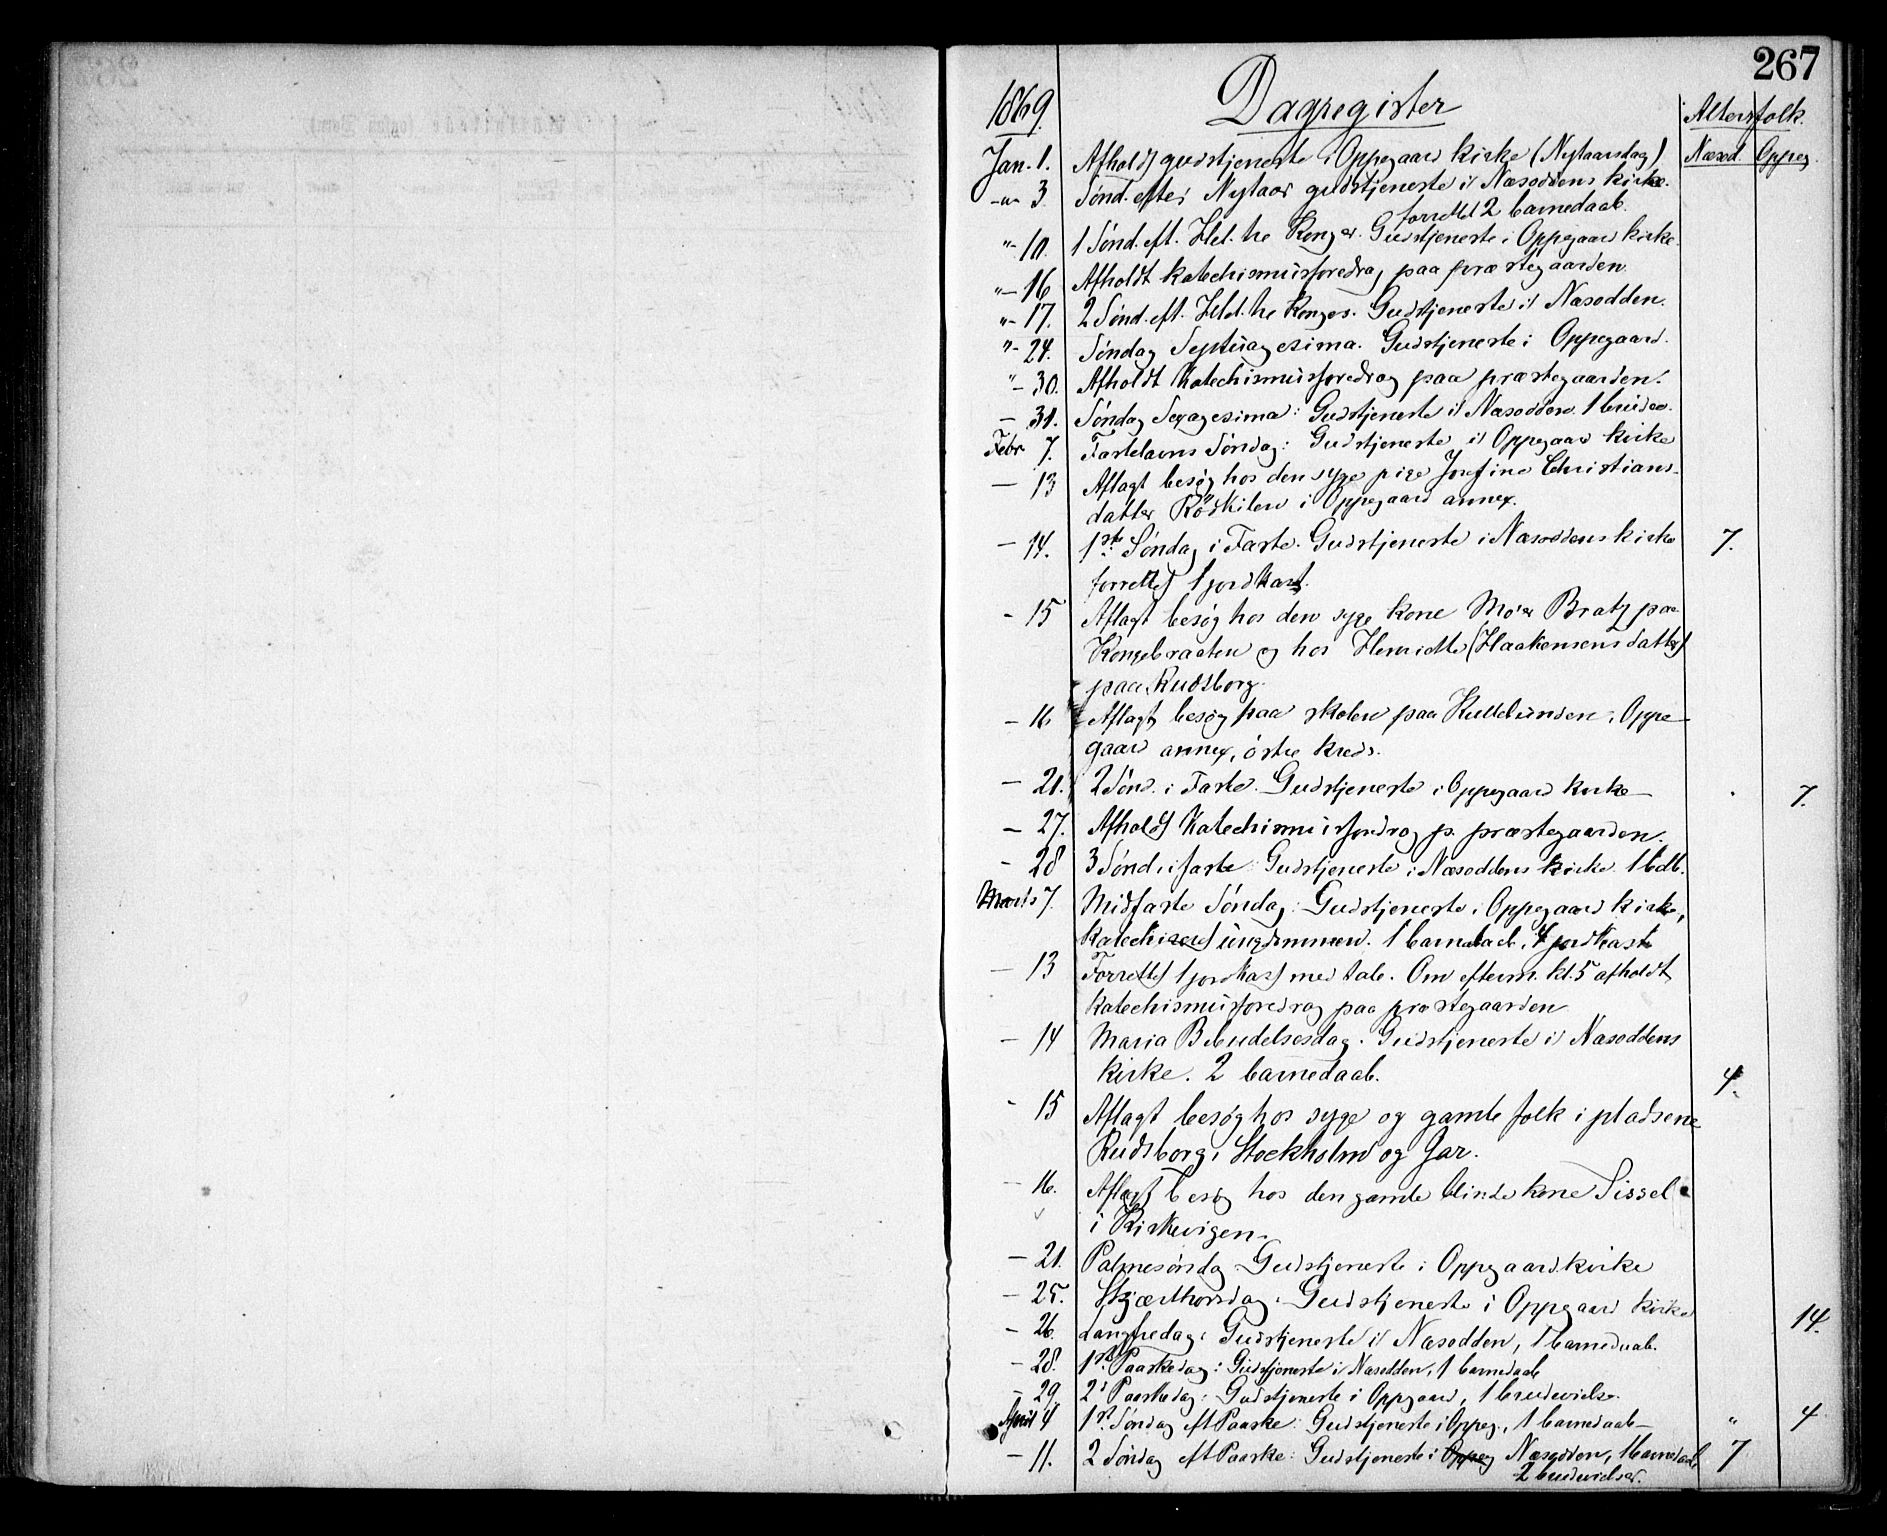 267
1869. Dagregister
Altersfolk.
Jan. 1. Afholdt gudstjeneste i Oppegaard kirke (Nytaarsdag) Næsod. Oppeg.
-"- 3. Sønd. efter Nytaar gudstjeneste i Næsoddens kirke.
forrettet 2 barnedaab.
"- 10. 1 Sønd. eft. Hel. tre Konger. Gudstjeneste i Oppegaard kirke.
"- 16 Afholdt katechismusforedrag paa præstegaarden.
"- 17. 2 Sønd. eft. Hel. tre Konges. Gudstjeneste i Næsodden.
"- 24. Søndag Septuagesima. Gudstjeneste i Oppegaard.
"- 30. Afholdt Katechismusforedrag paa præstegaarden.
- 31. Søndag Sexagesima: Gudstjeneste i Næsodden. 1
Febr 7. Fastelavns Søndag: Gudstjeneste i Oppegaard kirke
- 13 Aflagt besøg hos den syge pige Josefine Christians-
datter Rödkilen i Oppegaard annex.
- 14. 1ste Søndag i Faste. Gudstjeneste i Næsoddens kirke 7.
forrettet 1 jordkast.
- 15 Aflagt besøg hos den syge kone Bratz paa
Kongebraaten og hos Henriette (Haakensensdatter)
paa Rudsborg.
- 16 Aflagt besøg paa skolen paa Kullebunden, Oppe-
gaard annex, østre kreds.
- 21. 2 Sønd. i Faste. Gudstjeneste i Oppegaard kirke - 7.
- 27. Afholdt Katechismusforedrag p. præstegaarden.
- 28 3 Sønd i faste: Gudstjeneste i Næsoddens kirke. 1 bdb.
Marts 7. Midfaste Søndag: Gudstjeneste i Oppegaard kirke,
katechiseret ungdommen. 1 barnedaab, 4 jordkast
- 13 Forrettet 1 jordkast med tale. Om efterm. kl. 5 afholdt
katechismusforedrag paa præstegaarden
- 14 Maria Bebudelsesdag. Gudstjeneste i Næsoddens
kirke. 2 barnedaab. 4.
- 15 Aflagt besøg hos syge og gamle folk i pladsene
Rudsborg, Stockholm og Jar.
- 16. Aflagt besøg hos den gamle blinde kone Sissel
i Kirkevigen.
- 21. Palmesøndag Gudstjeneste i Oppegaard kirke
- 25. Skjærthorsdag. Gudstjeneste i Oppegaard kirke 14.
- 26. Langfredag. Gudstjeneste i Næsodden, 1 barnedaab.
- 28. 1ste Paaskedag: Gudstjeneste i Næsodden, 1 barnedaab
- 29. 2d Paaskedag. Gudstjeneste i Oppgaard, 1 brudevielse.
April 4 1ste Søndag eft Paaske: Gudstjeneste i Oppeg., 1 barnedaab- " 4
- 11. 2 Søndag eft Paaske: Gudstjeneste i Oppeg Næsodden, 1 barnedaab 7
2 brudevielser.